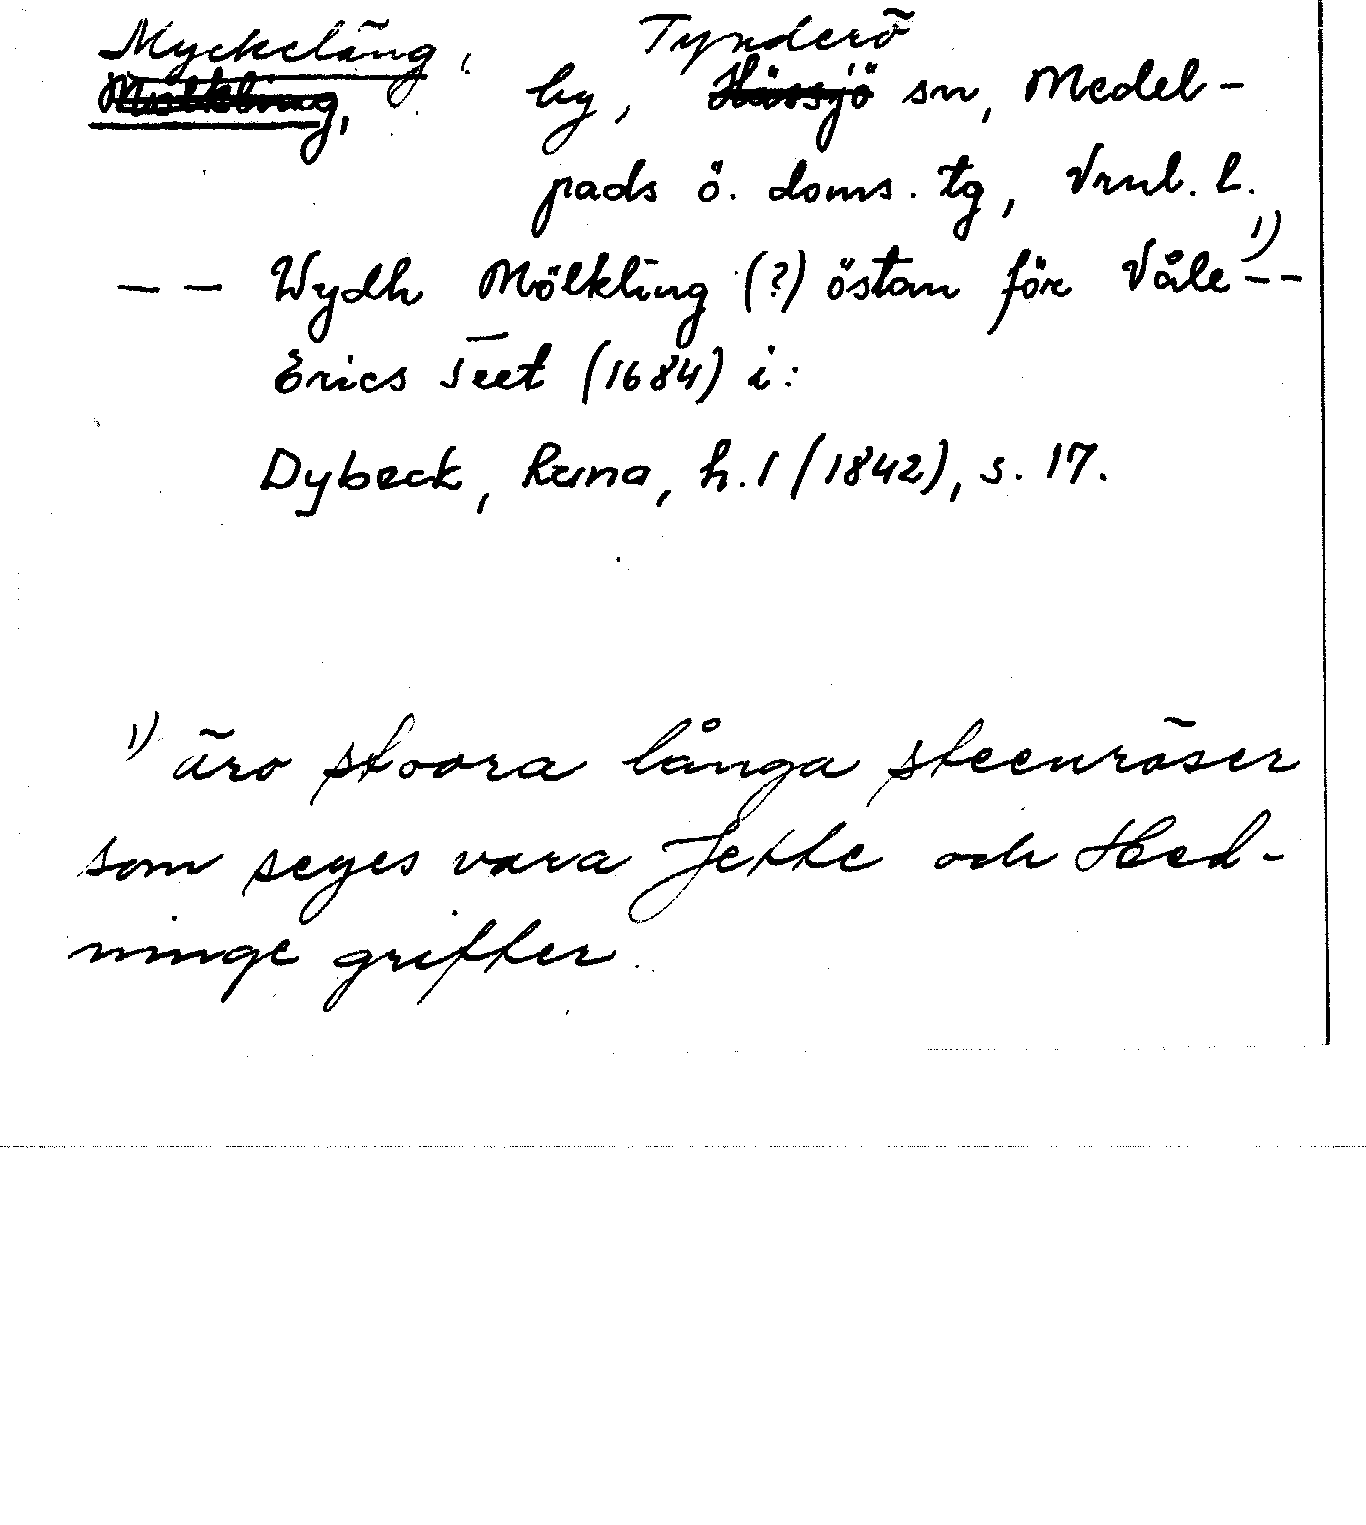 Myckeläng, Tynderö
Mölkling, by, Hässjö sn, Medel-
pads ö. doms. tg, Vrnl. l.
-- Wydh Mölkling (?) östan för Våle 1) --
Erics Teet (1684) i:
Dybeck, Runa, h. 1 (1842), s. 17.
1) äro stoora långa steenröser
som seyes vara Jette och Hed-
ninge grifter.